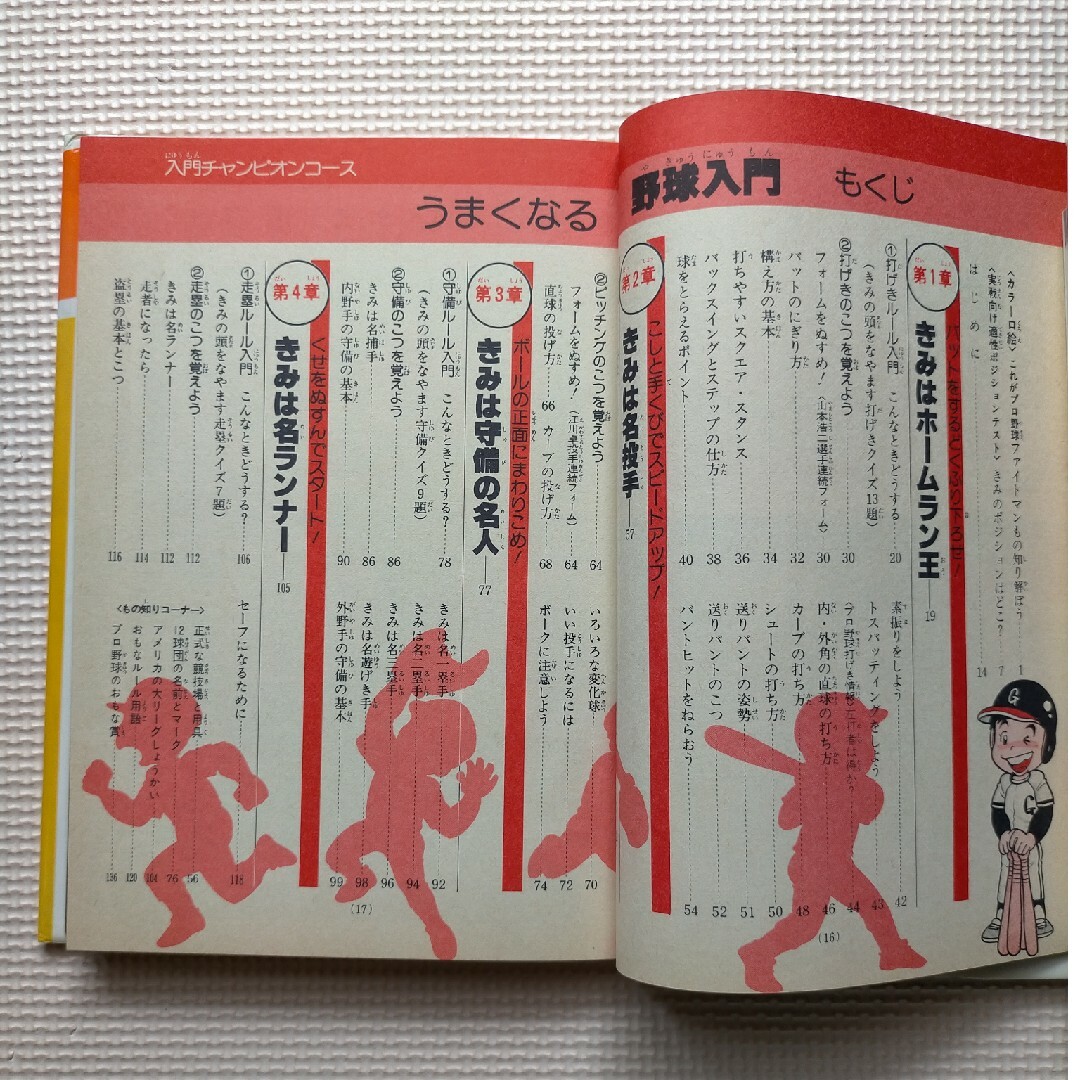 入門チャンピオンコース
うまくなる
野球入門
もくじ
〈カラー口絵〉これがプロ野球ファイトマンもの知り解ぼう……1
〈実戦向け適性ポジションテスト〉きみのポジションはどこ?……7
はじめに……14
第1章
バットをするどくふり下ろせ!
きみはホームラン王——19
①打げきルール入門 こんなときどうする……20
(きみの頭をなやます打げきクイズ13題)
②打げきのこつを覚えよう……30
フォームをぬすめ!(山本浩二選手連続フォーム)……30
バットのにぎり方……32
構え方の基本……34
打ちやすいスクエア・スタンス……36
バックスイングとステップの仕方……38
球をとらえるポイント……40
素振りをしよう……42
トスバッティングをしよう……43
プロ野球打げき情報 左打者は得か?……44
内・外角の直球の打ち方……46
カーブの打ち方……48
シュートの打ち方……50
送りバントの姿勢……51
送りバントのこつ……52
バントヒットをねらおう……54
第2章
こしと手くびでスピードアップ!
きみは名投手——57
②ピッチングのこつを覚えよう……64
フォームをぬすめ!(江川卓投手連続フォーム)……64
直球の投げ方……66 カーブの投げ方……68
いろいろな変化球……70
いい投手になるには……72
ボークに注意しよう……74
第3章
ボールの正面にまわりこめ!
きみは守備の名人——77
①守備ルール入門 こんなときどうする?……78
(きみの頭をなやます守備クイズ9題)
②守備のこつを覚えよう……86
きみは名捕手……86
内野手の守備の基本……90
きみは名一塁手……92
きみは名二塁手……94
きみは名三塁手……96
きみは名遊げき手……98
外野手の守備の基本……99
第4章
くせをぬすんでスタート!
きみは名ランナー——105
①走塁ルール入門 こんなときどうする?……106
(きみの頭をなやます走塁クイズ7題)
②走塁のこつを覚えよう……112
きみは名ランナー……112
走者になったら……114
盗塁の基本とこつ……116
セーフになるために……118
〈もの知りコーナー〉
正式な競技場と用具……56
12球団の名前とマーク……76
アメリカの大リーグしょうかい……104
おもなルール用語……120
プロ野球のおもな賞……136
(17)
(16)
G
G